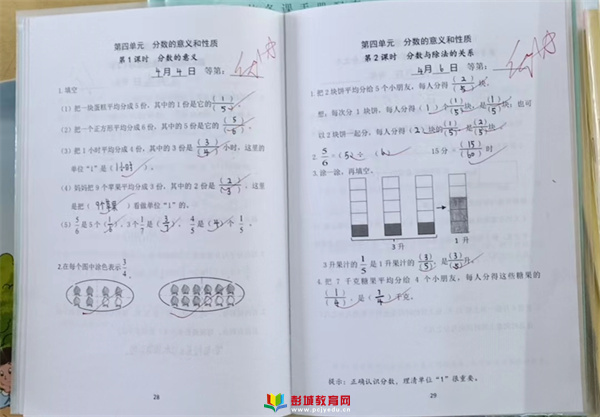 第四单元 分数的意义和性质
第1课时 分数的意义
4月4日 等第:
1.填空
(1)把一块蛋糕平均分成5份,其中的1份是它的(1/5)。
(2)把一个正方形平均分成6份,其中的5份是它的(5/6)。
(3)把1小时平均分成4份,其中的3份是(3/4)小时。这里的
单位“1”是(1小时)
(4)妈妈把9个苹果平均分成3份,其中的2份是(2/3)。这里
是把(9个苹果)看做单位“1”的。
(5)5/6是5个(1/6),3个1/7是(3/7),4/5是(4)个1/5。
2.在每个图中涂色表示3/4。
28
第四单元 分数的意义和性质
第2课时 分数与除法的关系
4月6日 等第:
1.把2块饼平均分给5个小朋友,每人分得(2/5)块。
想:每次分1块饼,每人分得(1)个(1/5)块,是(1/5)块,也可
以2块饼一起分,每人分得(2)块的(1/5),是(2/5)块。
2.5/6=(5)÷(6) 15分=(15/60)时
3.涂一涂,再填空。
3升 1升
3升果汁的1/5是1升果汁的(3/5),是(3/5)升。
4.把7千克糖果平均分给4个小朋友,每人分得这些糖果的
(1/4),是(7/4)千克。
提示:正确认识分数,理清单位“1”很重要。
29
彭城教育网
www.pcjyedu.cn